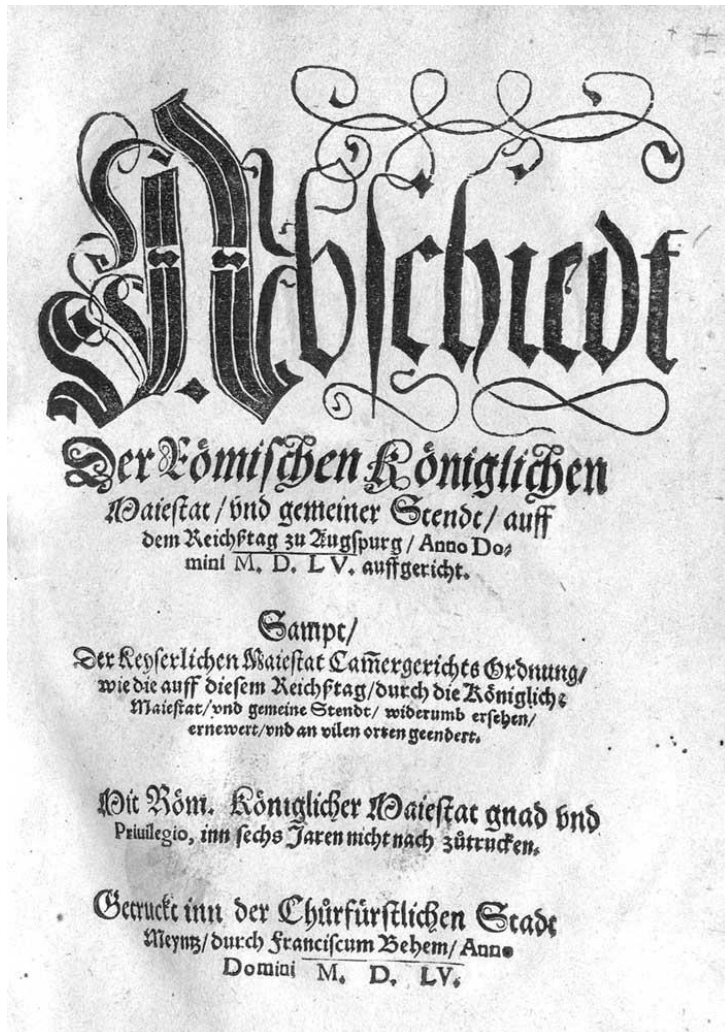 Abschiedt
Der Römischen Königlichen
Maiestat/ vnd gemeiner Stendt/ auff
dem Reichßtag zu Augspurg/ Anno Do⸗
mini M. D. LV. auffgericht.
Sampt/
Der Keyserlichen Maiestat Cam̃ergerichts Ordnung/
wie die auff diesem Reichßtag/ durch die Königliche
Maiestat/ vnd gemeine Stendt/ widerumb ersehen/
ernewert/ vnd an vilen orten geendert.
Mit Röm. Königlicher Maiestat gnad vnd
Priuilegio, inn sechs Jaren nicht nach zůtrucken.
Getruckt inn der Chůrfürstlichen Stadt
Meyntz/ durch Franciscum Behem/ Anno
Domini M. D. LV.